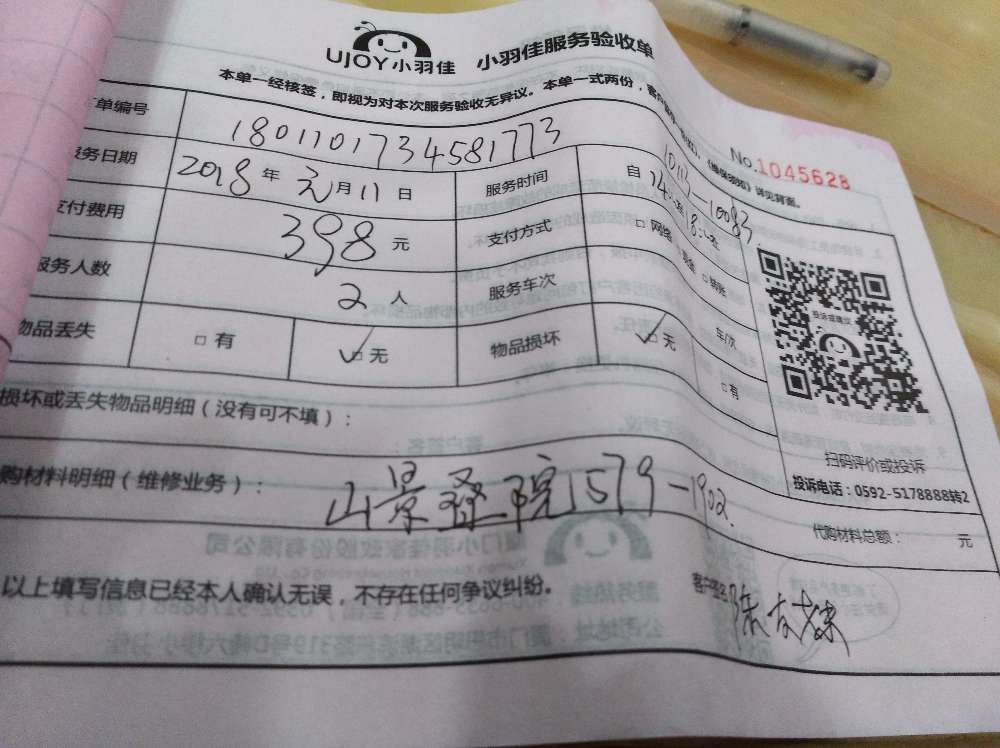 UJOY小羽佳 小羽佳服务验收单
本单一经核签，即视为对本次服务验收无异议。本单一式两份，客户
详见背面。
No.1045628
单编号 1801101734581773
10113-10083
服务日期 2018年 元月11日 服务时间 自14
支付费用 398元 支付方式 □网络 □现金 □转账
服务人数 2人 服务车次 车/次
物品丢失 □有 ✓□无 物品损坏 ✓□无 □有
投诉或建议
扫码评价或投诉
投诉电话：0592-5178888转2
损坏或丢失物品明细（没有可不填）：
购材料明细（维修业务）： 山景 院1579-1902.
代购材料总额： 元
以上填写信息已经本人确认无误，不存在任何争议纠纷。 客户签名